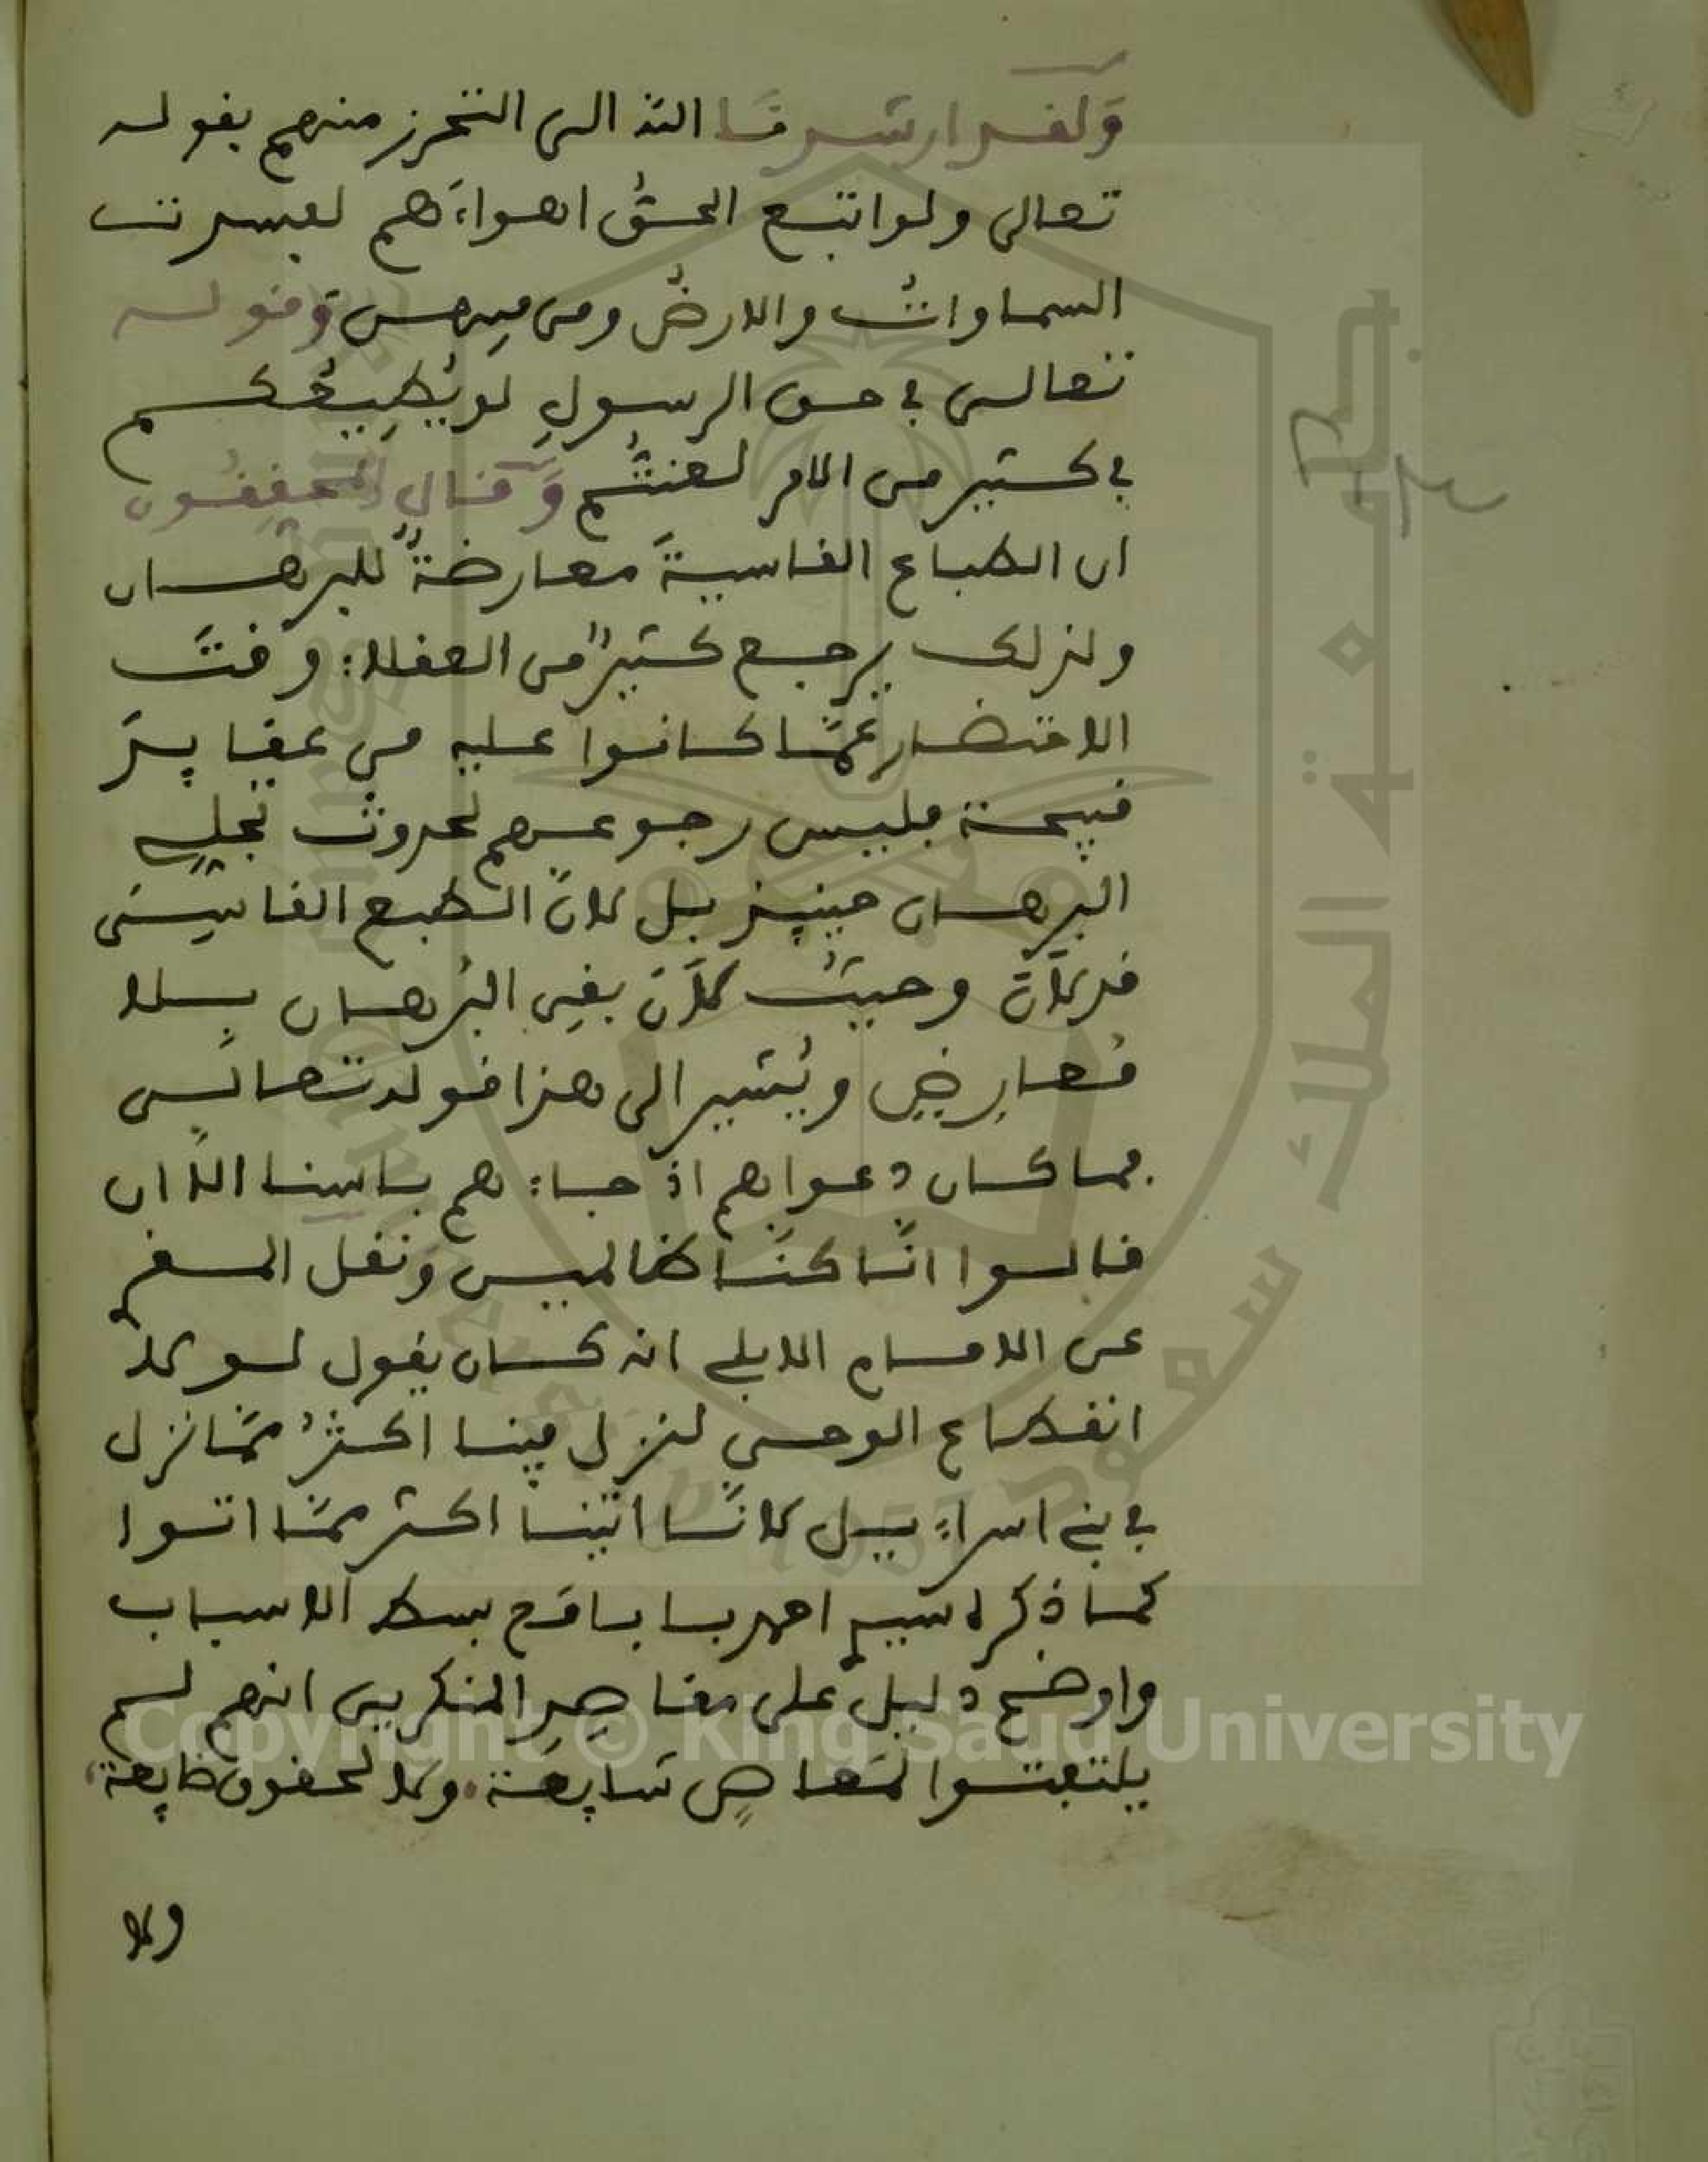 ولقد ارشدنا الله الى التحرز منهم بقوله
تعالى ولو اتبع الحقُّ اهواءَهم لفسدت
السماواتُ والارضُ ومن فيهن وقوله
تعالى في حق الرسولِ لو يُطِيعُكم
في كثير من الامر لعنتُّم وقال المحققون
ان الطباع القاسيةَ معارضةٌ للبرهان
ولذلك يرجع كثيرٌ من العقلاء وقتَ
الاحتضار عمّا كانوا عليه من عقايدَ
قبيحة فليس رجوعهم لحدوث تجلي
البرهان حينيذ بل لانّ الطبع القاسي
قد لانَ وحيثُ لاَنَ بقي البُرهان بلا
مُعارِضٍ ويُشير الى هذا قوله تعالى
فما كان دعواهم اذ جاءهم باسنا الا ان
قالوا انّا كنّا ظالمين ونقل
عن الامام انه كان يقول لولا
انقطاع الوحي لنزل فينا اكثرُ ممّا نزل
في بني اسراءيل لانّا اتينا اكثر ممّا اتوا
كما ذكره سيدي احمد بابا مع بسط الاسباب
واوضح دليل على مقاصِدِ المنكرين انهم لم
يلتفتوا لمَعاصٍ شايعَة ولا لحقوق ضايعة
ولا
جامعة الملك سعود
1957
Copyright © King Saud University